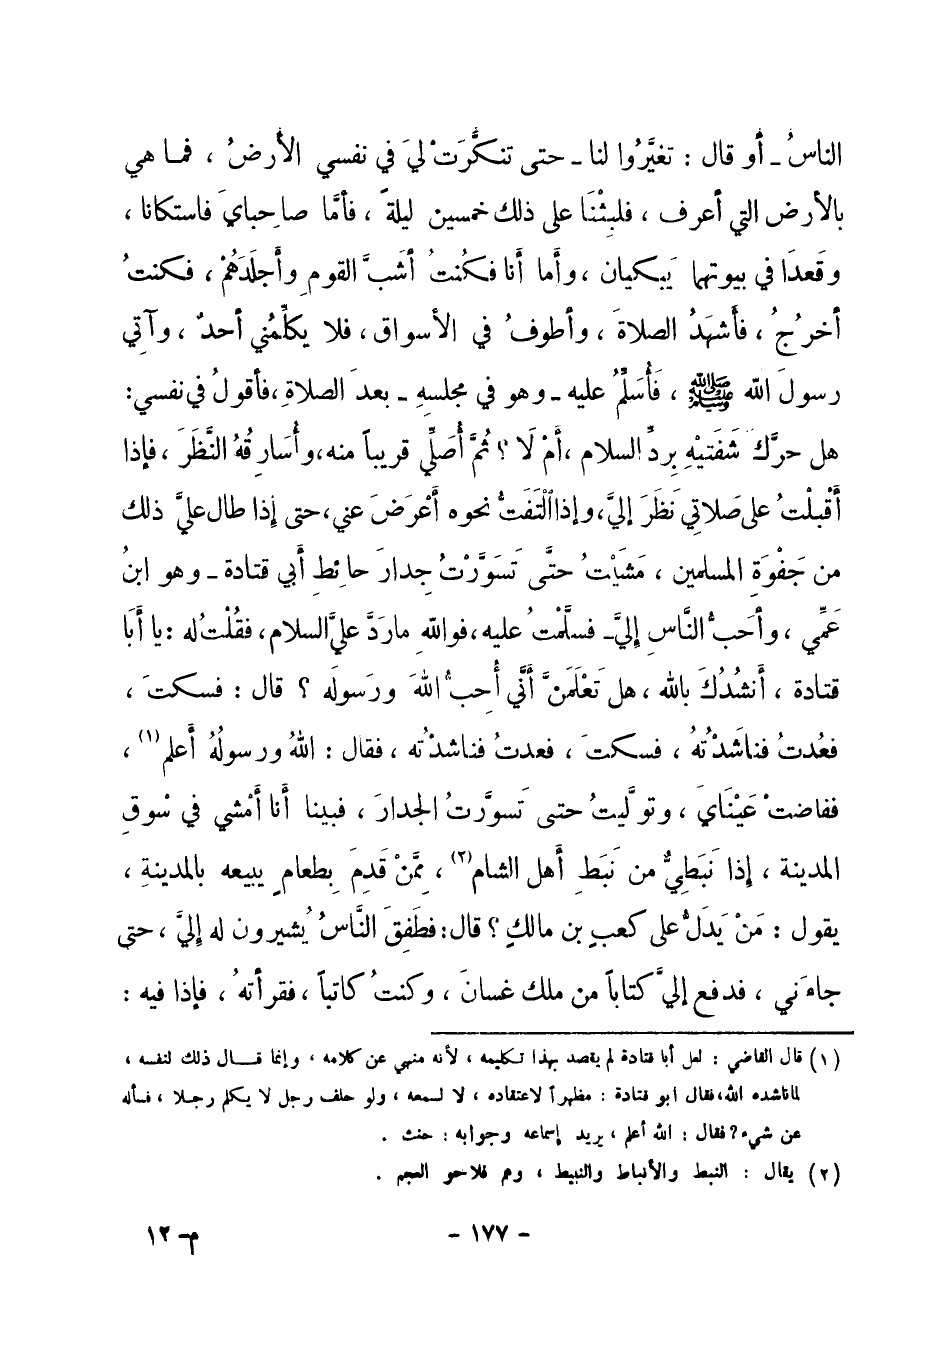 الناسُ ـ أو قال : تغيَّرُوا لنا ـ حتى تنكَّرَتْ ليَ في نفسي الأرضُ ، فما هي
بالأرض التي أعرف ، فلبِثْنَا على ذلك خمسين ليلةً ، فأمَّا صاحِباي فاستكانا ،
وقعدَا في بيوتهما يَبكيان ، وأما أنا فكُنتُ أشَبَّ القومِ وأجلَدَهُمْ ، فكنتُ
أخرُجُ ، فأشهَدُ الصلاةَ ، وأطوفُ في الأسواق ، فلا يكلِّمُني أحدٌ ، وآتِي
رسولَ الله ﷺ ، فَأُسَلِّمُ عليه ـ وهو في مجلسهِ ـ بعدَ الصلاةِ ،فأقولُ في نفسي:
هل حرَّكَ شَفَتيْهِ بردِّ السلام ،أمْ لَا ؟ ثُمَّ أُصَلِّي قريباً منه،وأُسَارِقُهُ النَّظَرَ ، فإذا
أقْبلْتُ على صَلاتِي نَظَرَ إليَّ،وإذا ٱلْتَفَتُّ نحوه أعْرَضَ عني،حتى إذا طال عليَّ ذلك
من جَفْوَةِ المسلمين ، مَشَيْتُ حتَّى تَسَوَّرْتُ جِدارَ حائطِ أبي قتادة ـ وهو ابنُ
عَمِّي ، وأحَبُّ النَّاسِ إليَّ ـ فسلَّمْتُ عليه ،فواللهِ ماردَّ عليَّ السلام، فقُلْتُ له :يا أبَا
قتادة ، أنشُدُكَ بالله ، هل تَعْلَمَنَّ أنِّي أُحِبُّ اللهَ ورَسولَه ؟ قال : فسكتَ ،
فعُدتُ فناشَدْتُهُ ، فسكتَ ، فعدتُ فناشدْتُه ، فقال : اللهُ ورسولُهُ أعلم(١) ،
ففاضتْ عَيْنَايَ ، وتولَّيتُ حتى تَسوَّرتُ الجدارَ ، فبينا أنا أمْشي في سُوقِ
المدينة ، إذا نَبَطِيٌّ من نَبَطِ أهل الشام(٢) ، ممَّنْ قَدِمَ بِطعامٍ يبيعه بالمدينةِ ،
يقول : مَنْ يَدَلُّ على كعبِ بن مالكٍ ؟ قال: فطَفِقَ النَّاسُ يُشيرون له إليَّ ، حتى
جاءَني ، فدفع إليَّ كتاباً من ملك غسانَ ، وكنتُ كاتباً ، فقرأتهُ ، فإذا فيه :
(١) قال القاضي : لعل أبا قتادة لم يقصد بهذا تكليمه ، لأنه منهي عن كلامه ، وإنما قـــال ذلك لنفسه ،
لما ناشده الله،فقال ابو قتادة : مظهراً لاعتقاده ، لا لسمعه ، ولو حلف رجل لا يكلم رجلا ، فسأله
عن شيء؟ فقال : الله أعلم ، يريد إسماعه وجوابه : حنث .
(٢) يقال : النبط والأنباط والنبيط ، وهم فلاحو العجم .
- ١٧٧ -
م-١٢